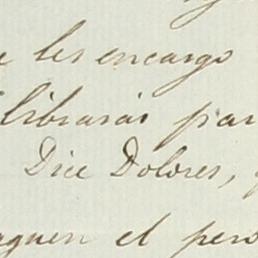 les encargo
libraras par
Dice Dolores,
aguen el pero